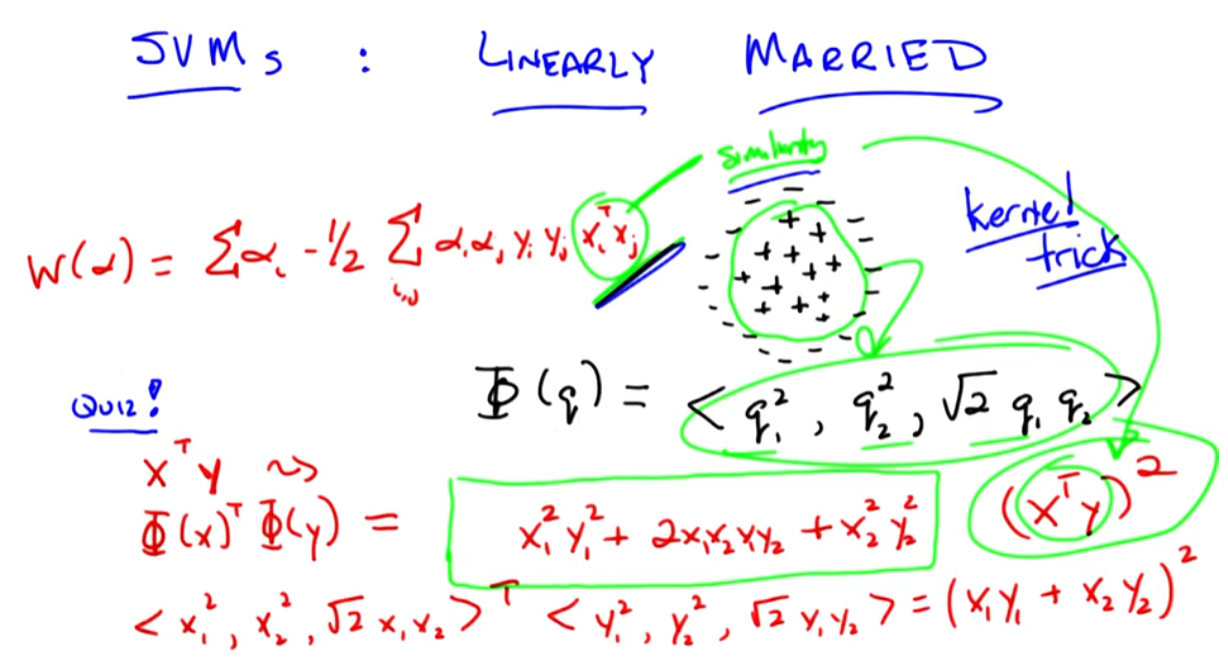 SVMs : LINEARLY MARRIED
similarity
kernel
trick
W(α) = Σαᵢ - 1/2 Σ αᵢαⱼ yᵢ yⱼ xᵢᵀxⱼ
i,j
Φ(q) = < q₁², q₂², √2 q₁ q₂ >
QUIZ!
xᵀy ⇝
Φ(x)ᵀ Φ(y) = x₁²y₁² + 2x₁x₂y₁y₂ + x₂²y₂² (xᵀy)²
< x₁², x₂², √2 x₁x₂ >ᵀ < y₁², y₂², √2 y₁y₂ > = (x₁y₁ + x₂y₂)²